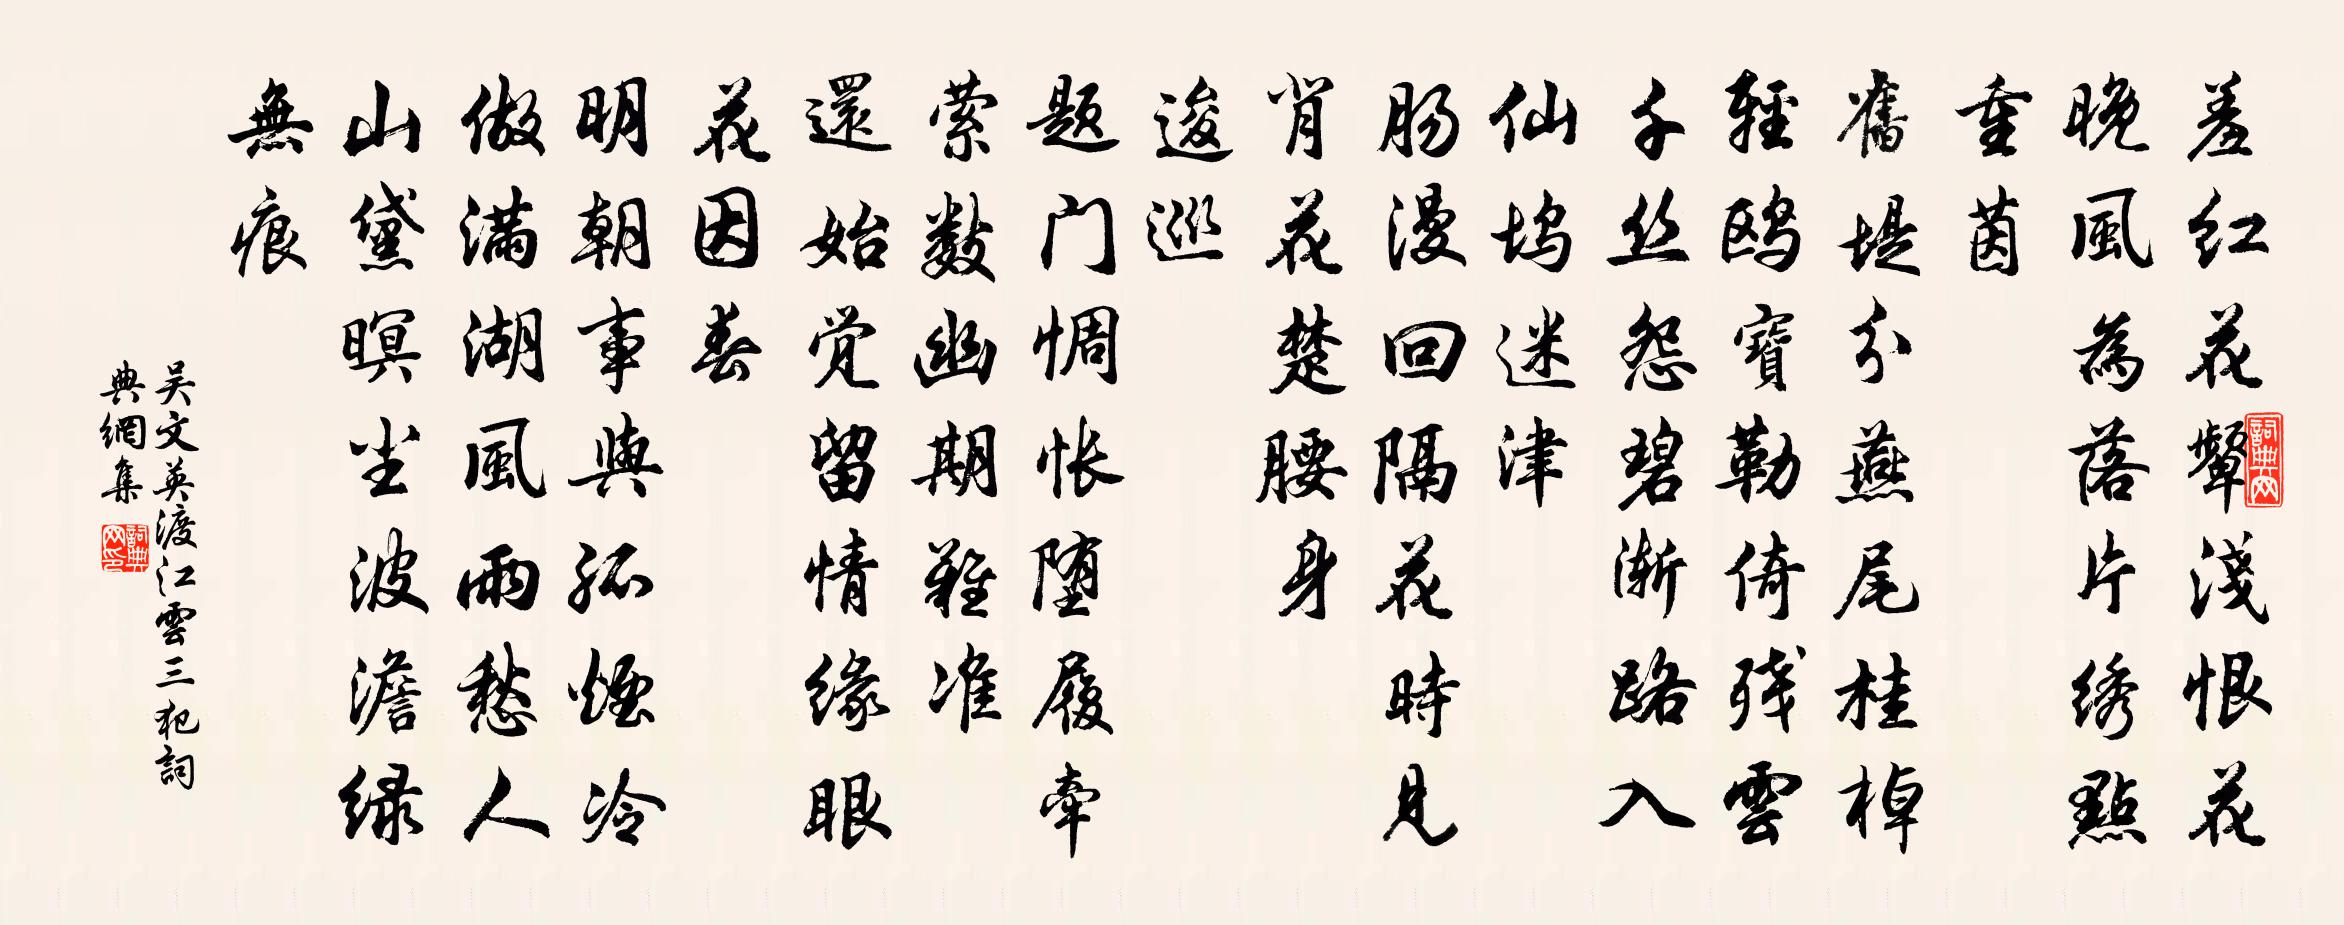 羞红花颦淺恨花
晚風為落片绣點
重茵
舊堤分燕尾桂棹
輕鸥寶勒倚残雲
千丝怨碧渐路入
仙坞迷津
肠漫回隔花時見
肖花楚腰身
逡巡
题门惆怅堕履牵
萦數幽期難准
還始觉留情缘眼
花因春
明朝事與孤煙冷
做满湖風雨愁人
山黛暝尘波澹绿
無痕
吴文英渡江雲三犯詞
典網集
詞典网
詞典网印